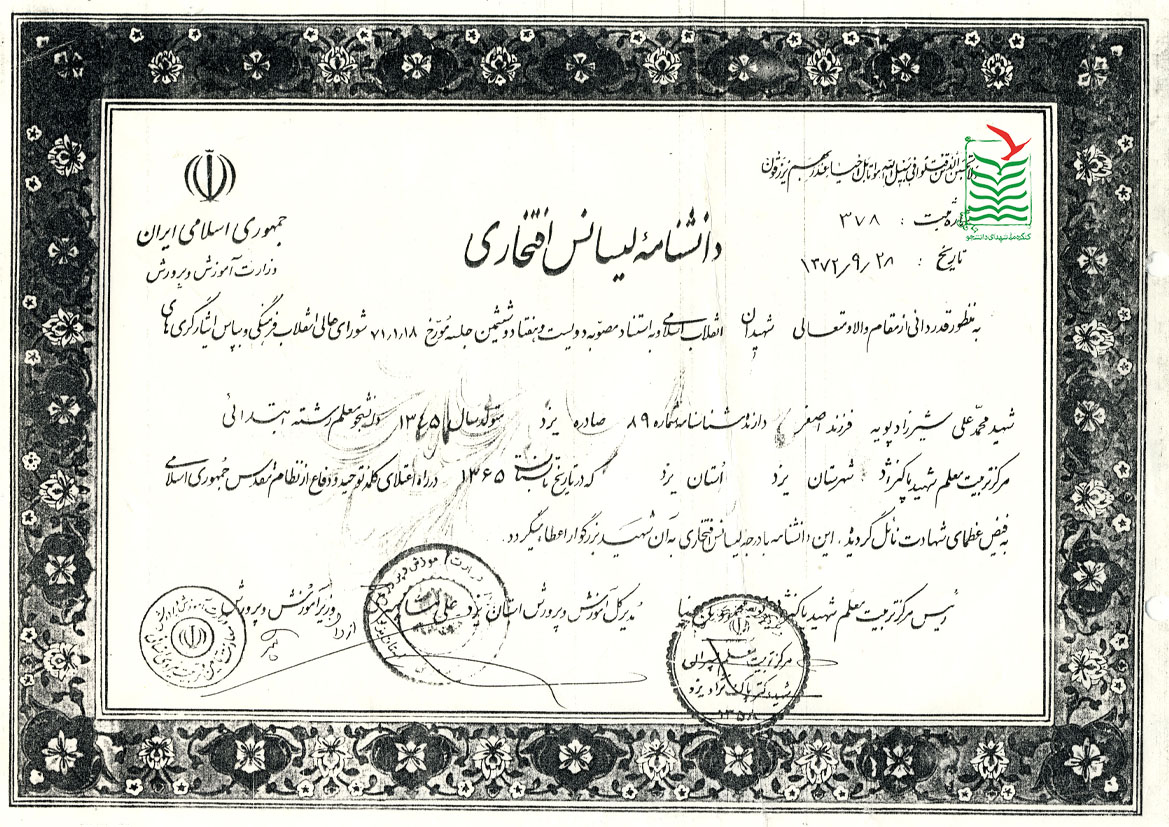 ولا تحسبن الذین قتلوا فی سبیل الله امواتا بل احیاء عند ربهم یرزقون
جمهوری اسلامی ایران
وزارت آموزش و پرورش
دانشنامهٔ لیسانس افتخاری
شماره ثبت : ۳۷۸
تاریخ : ۱۳۷۲/۹/۲۸
کنگره ملی شهدای دانشجو
به منظور قدردانی از مقام والا و متعالی شهیدان انقلاب اسلامی و به استناد مصوبه دویست و هفتاد و ششمین جلسه مورخ ۷۱/۱/۱۸ شورای عالی انقلاب فرهنگی و بپاس ایثارگری های
شهید محمدعلی شیرزادپویه فرزند اصغر دارندهٔ شناسنامه شماره ۸۹ صادره یزد متولد سال ۱۳۴۵ دانشجو معلم رشته ابتدائی
مرکز تربیت معلم شهید پاکنژاد شهرستان یزد استان یزد که در تاریخ تابستان ۱۳۶۵ در راه اعتلای کلمه توحید و دفاع از نظام مقدس جمهوری اسلامی
به فیض عظمای شهادت نائل گردیده . این دانشنامه با درجه لیسانس افتخاری به آن شهید بزرگوار اعطا میگردد.
رئیس مرکز تربیت معلم شهید پاکنژاد
مدیر کل آموزش و پرورش استان یزد
وزیر آموزش و پرورش
مرکز تربیت معلم پسران
شهید دکتر پاک نژاد یزد
۱۳۵۸